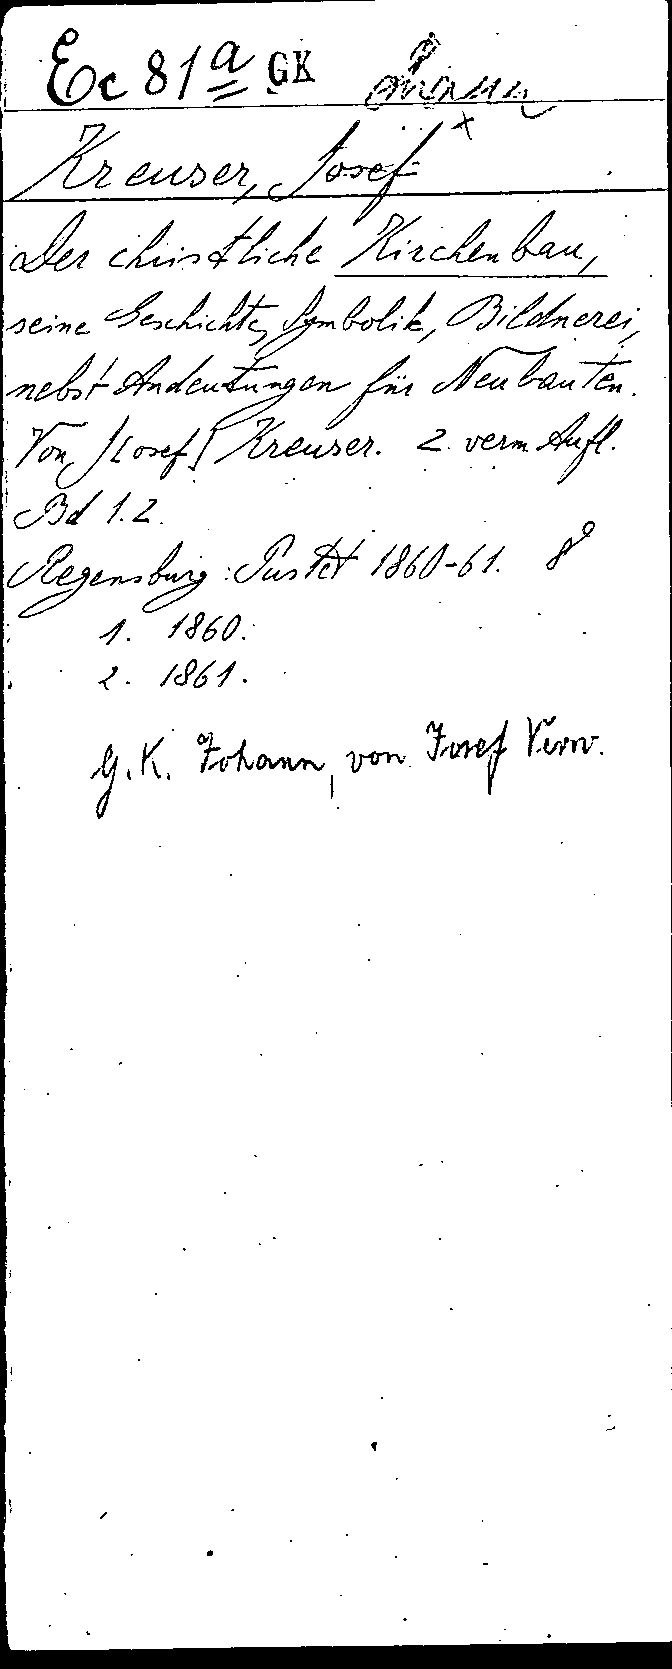 Ec 81 a GK Johann
Kreuser, Josef x
Der christliche Kirchenbau,
seine Geschichte, Symbolik, Bildnerei,
nebst Andeutungen für Neubauten.
Von J[osef] Kreuser. 2. verm. Aufl.
Bd 1.2.
Regensburg: Pustet 1860-61. 8°
1. 1860.
2. 1861.
G.K. Johann, von Josef Verw.